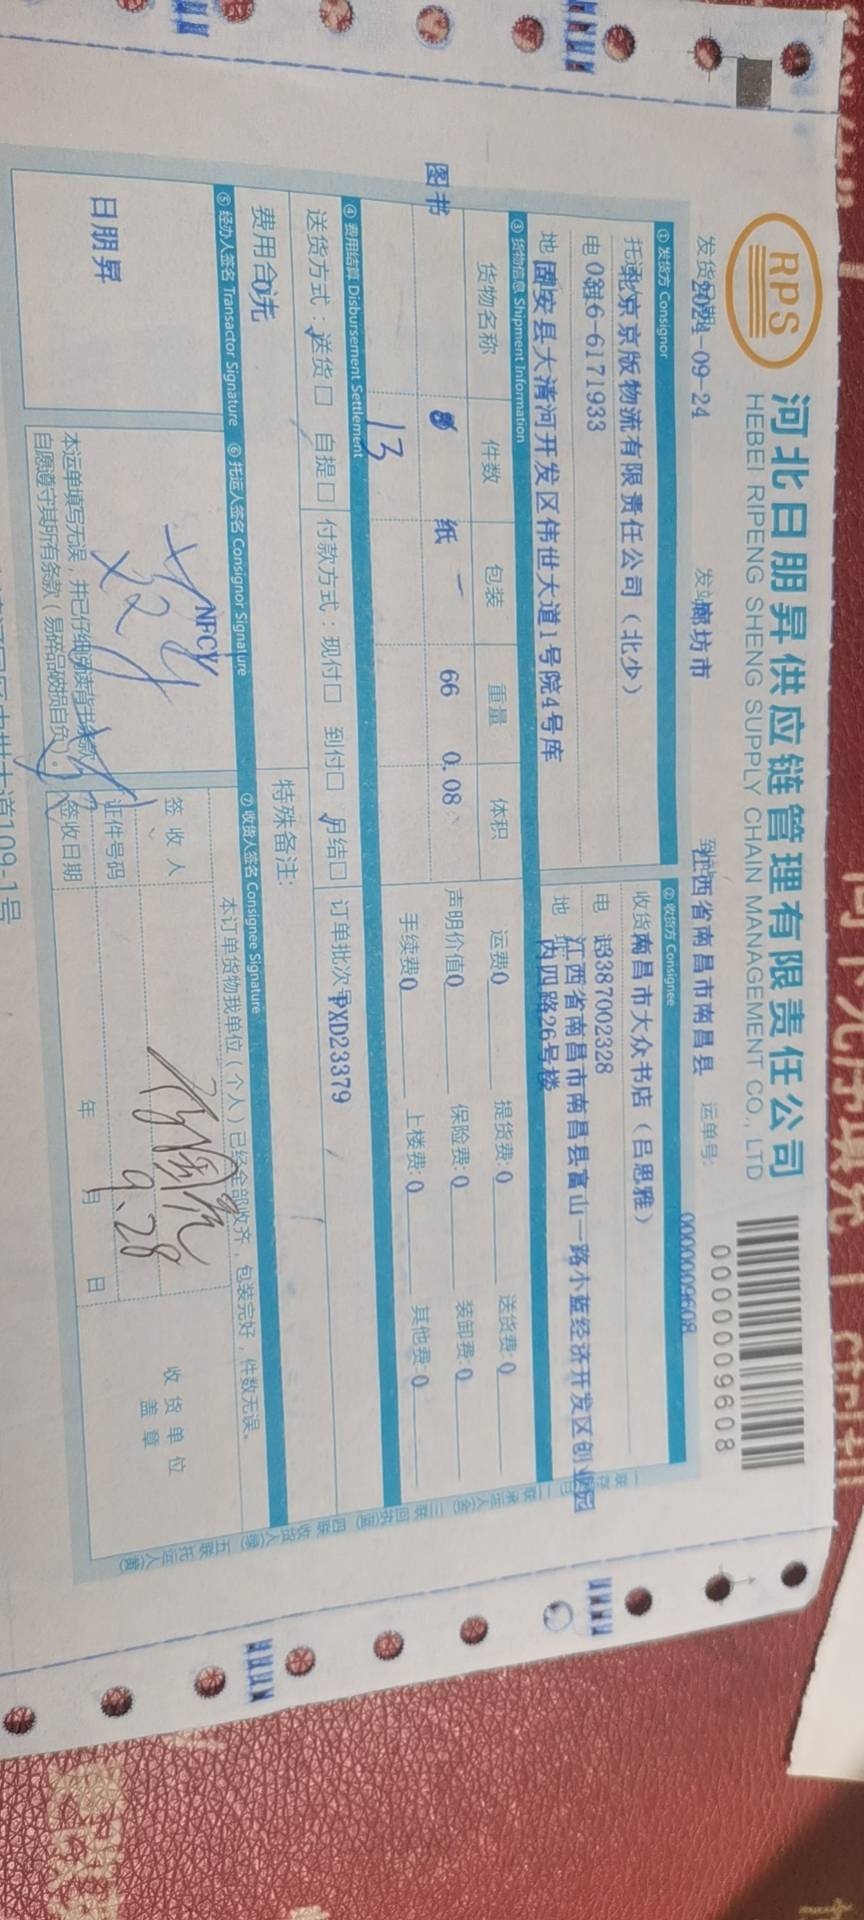 RPS
河北日朋昇供应链管理有限责任公司
HEBEI RIPENG SHENG SUPPLY CHAIN MANAGEMENT CO., LTD
0000009608
2024-09-24
廊坊市
江西省南昌市南昌县
运单号:
0000009608
① 发货方 Consignor
② 收货方 Consignee
北京京版物流有限责任公司（北少）
收货 南昌市大众书店（吕思雅）
电 0316-6171933
电 13387002328
地 固安县大清河开发区伟世大道1号院4号库
地 江西省南昌市南昌县富山一路小蓝经济开发区创业园
内四路26号楼
③ 货物信息 Shipment Information
货物名称 件数 包装 重量 体积
运费0 提货费:0 送货费:0
图书 纸 66 0.08
声明价值0 保险费:0 装卸费:0
13
手续费0 上楼费:0 其他费:0
④ 费用结算 Disbursement Settlement
送货方式：送货□ 自提□ 付款方式：现付□ 到付□ 月结□ 订单批次号PXD23379
费用合 0元
特殊备注:
⑤ 经办人签名 Transactor Signature ⑥ 托运人签名 Consignor Signature ⑦ 收货人签名 Consignee Signature
NFCV
本订单货物我单位（个人）已经全部收齐，包装完好，件数无误。
日朋昇
签收人
收货单位
盖章
证件号码
9.28
本运单填写无误，并已仔细阅读背书条款，
自愿遵守其所有条款（易碎品破损自负）。
签收日期 年 月 日
道109-1号